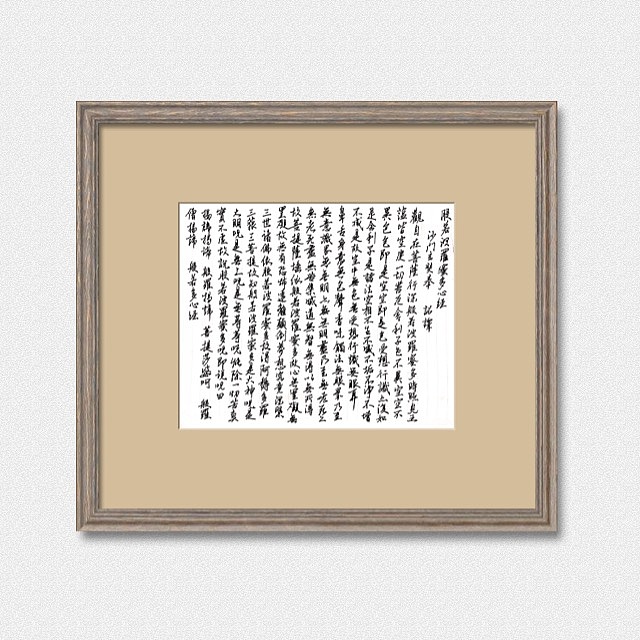 般若波羅蜜多心經
沙門玄奘奉 詔譯
觀自在菩薩行深般若波羅蜜多時照見五
蘊皆空度一切苦厄舍利子色不異空空不
異色色即是空空即是色受想行識亦復如
是舍利子是諸法空相不生不滅不垢不淨不增
不減是故空中無色無受想行識無眼耳
鼻舌身意無色聲香味觸法無眼界乃至
無意識界無無明亦無無明盡乃至無老死亦
無老死盡無苦集滅道無智亦無得以無所得
故菩提薩埵依般若波羅蜜多故心無罣礙無
罣礙故無有恐怖遠離顛倒夢想究竟涅槃
三世諸佛依般若波羅蜜多故得阿耨多羅
三藐三菩提故知般若波羅蜜多是大神咒是
大明咒是無上咒是無等等咒能除一切苦真
實不虛故說般若波羅蜜多咒即說咒曰
揭諦揭諦 般羅揭諦 菩提莎婆呵 般羅
僧揭諦 般若多心經